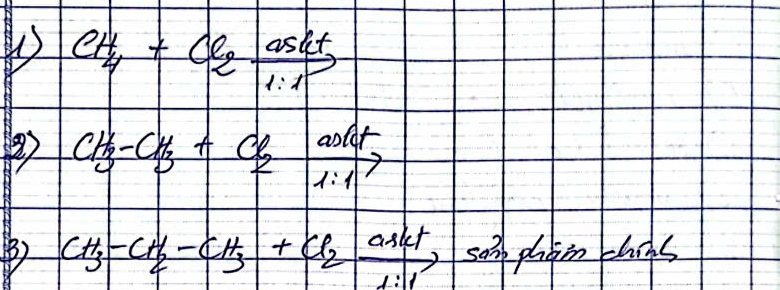 1) CH₄ + Cl₂ askt→ 1:1
2) CH₃-CH₃ + Cl₂ askt→ 1:1
3) CH₃-CH₂-CH₃ + Cl₂ askt→ 1:1 sản phẩm chính